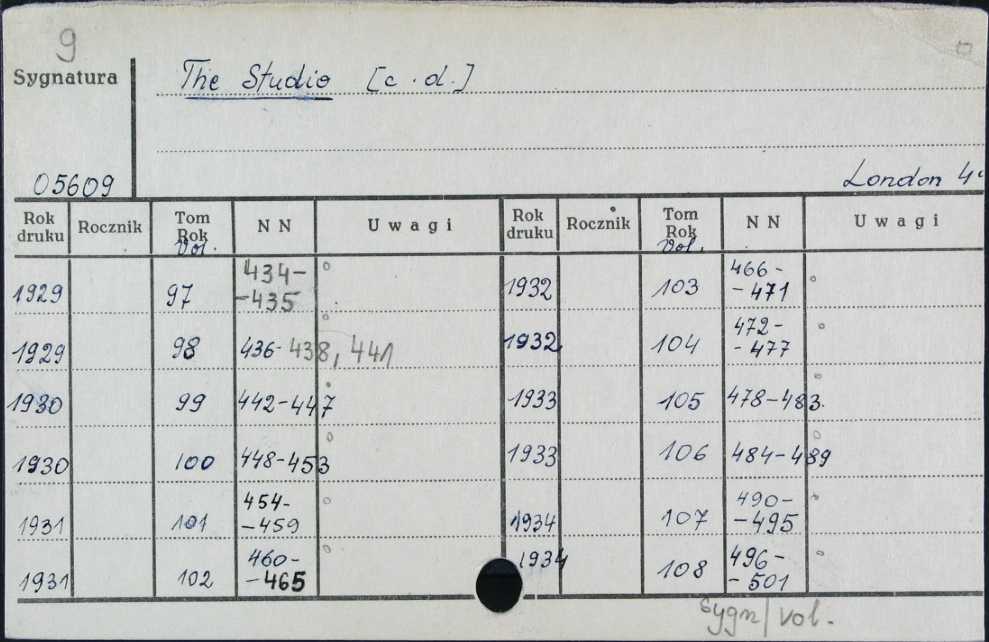 9
Sygnatura
The Studio [c.d.]
05609
London 4°
Rok druku Rocznik Tom Rok Vol. NN Uwagi Rok druku Rocznik Tom Rok Vol. NN Uwagi
1929 97 434-
-435
1932 103 466-
-471
1929 98 436-438, 441
1932 104 472-
-477
1930 99 442-447
1933 105 478-483.
1930 100 448-453
1933 106 484-489
1931 101 454-
-459
1934 107 490-
-495
1931 102 460-
-465
1934 108 496-
-501
Sygn/vol.